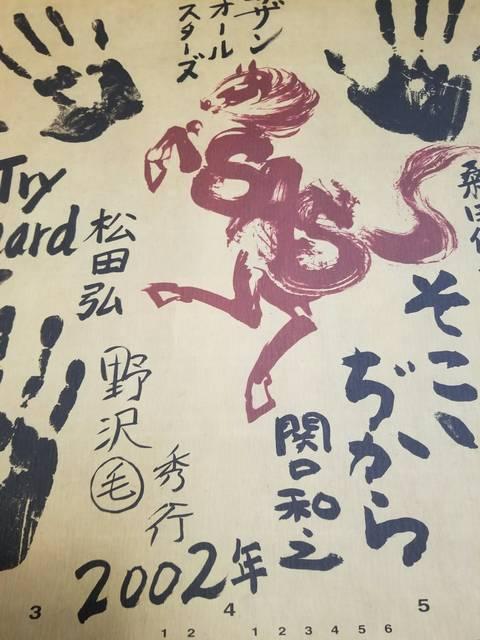 ザン
オール
スターズ
SAS
桑田
そこ
ぢから
Try
ard
松田弘
野沢
毛
秀行
関口和之
2002年
3 4 5
1 2 1 2 3 4 5 6